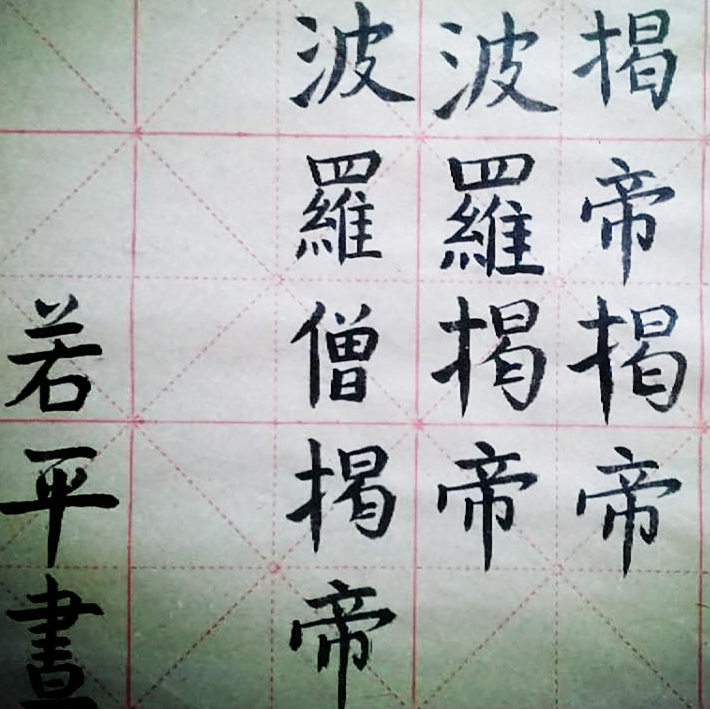 揭帝揭帝
波羅揭帝
波羅僧揭帝
若平書